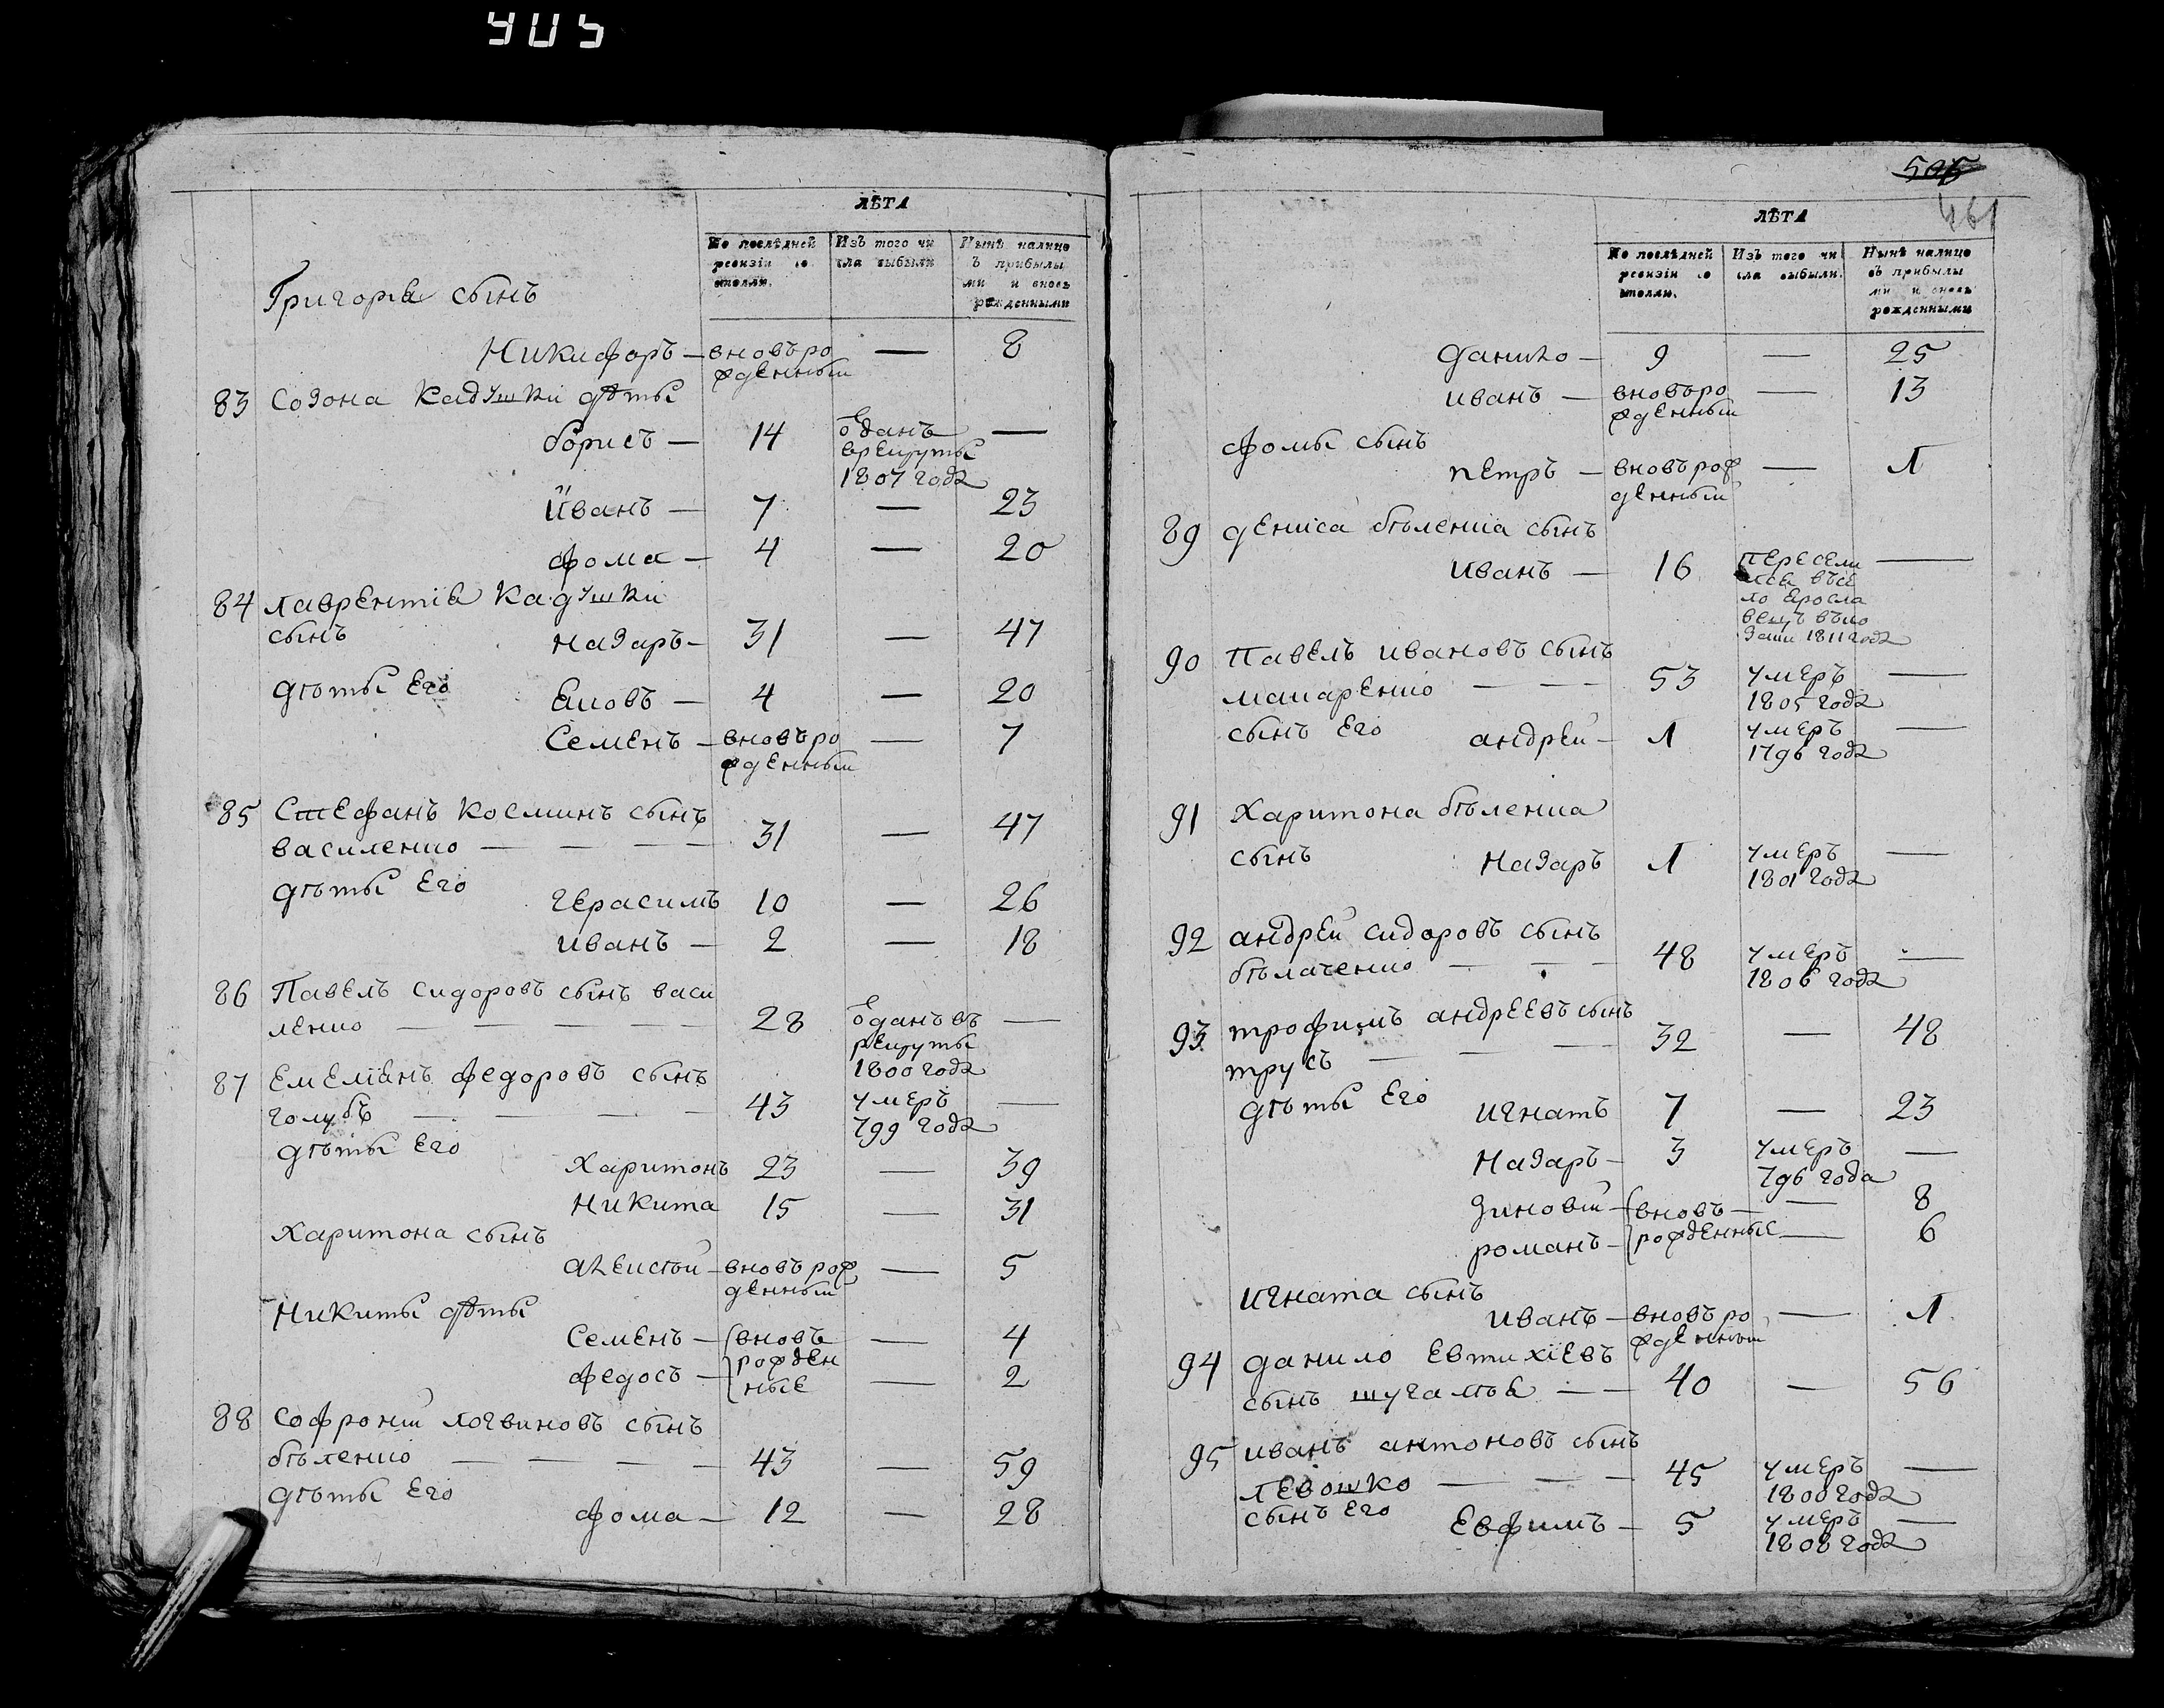 905
ЛѢТА
По послѣдней ревизіи состояли.
Изъ того числа выбыли
Нынѣ налицо съ прибылыми и вновь рожденными
Григорія сынъ
Никифоръ — вновъро — 8
жденный
83 Созона Кадушки дѣты
борисъ — 14 ѿданъ —
врекруты
1807 года
Иванъ — 7 — 23
фома — 4 — 20
84 лаврентія Кадушки
сынъ назаръ — 31 — 47
дѣты его яковъ — 4 — 20
Семенъ — вновъро — 7
жденный
85 Стефанъ Косминъ сынъ
василенко — — — — 31 — 47
дѣты его герасимъ 10 — 26
иванъ — 2 — 18
86 Павелъ сидоровъ сынъ васи
ленко — — — — 28 ѿданъ въ —
рекруты
1800 года
87 Емеліянъ федоровъ сынъ
голубъ — — — — 43 умеръ —
799 года
дѣты его
Харитонъ 23 — 39
Никита 15 — 31
Харитона сынъ
алексѣй — вновъ рож — 5
денный
Никиты дѣты
Семенъ — вновъ — 4
рожден
федосъ — ные — 2
88 Софроній логвиновъ сынъ
бѣленко — — — — 43 — 59
дѣты его
фома — 12 — 28
505
461
ЛѢТА
По послѣдней ревизіи состояли.
Изъ того числа выбыли.
Нынѣ налицо съ прибылыми и вновь рожденными
данило — 9 — 25
иванъ — вновъро — 13
жденный
фомы сынъ
петръ — вновъ рож — 1
денный
89 дениса бѣленка сынъ
иванъ — 16 пересели —
лся въсе
ло яросла
вку въко
заки 1811 года
90 Павелъ ивановъ сынъ
макаренко — — 53 умеръ —
1805 года
сынъ его андрей — 1 умеръ —
1796 года
91 Харитона бѣленка
сынъ Назаръ 1 умеръ —
1801 года
92 андрей сидоровъ сынъ
бѣлаченко — — 48 умеръ —
1806 года
93 трофимъ андреевъ сынъ
трусъ — — — 32 — 48
дѣты его игнатъ 7 — 23
Назаръ — 3 умеръ —
796 года
зиновій — вновъ — — 8
романъ — рожденные — 6
игната сынъ
иванъ — вновъ ро — 1
жденный
94 данило Евтихіевъ
сынъ шугалѣя — — 40 — 56
95 иванъ антоновъ сынъ
левошко — — — 45 умеръ —
1800 года
сынъ его Евфимъ — 5 умеръ —
1808 года